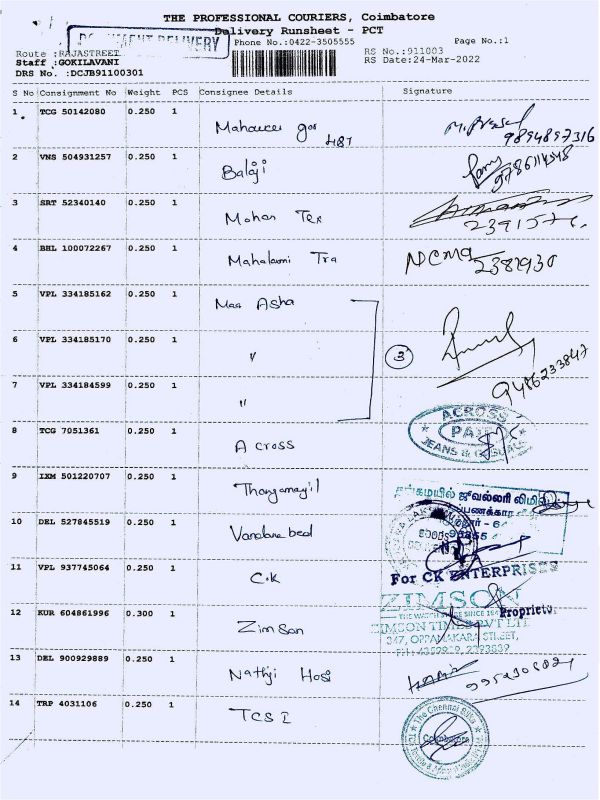 THE PROFESSIONAL COURIERS, Coimbatore
Delivery Runsheet - PCT
DOCUMENT DELIVERY
Phone No.:0422-3505555 Page No.:1
Route :RAJASTREET RS No.:911003
Staff :GOKILAVANI RS Date:24-Mar-2022
DRS No. :DCJB91100301
S No Consignment No Weight PCS Consignee Details Signature
1 TCG 50142080 0.250 1 487 9894897316
2 VNS 504931257 0.250 1 Balaji
3 SRT 52340140 0.250 1 Mohan Tex
4 BHL 100072267 0.250 1 Mahalaxmi Tra 2381930
5 VPL 334185162 0.250 1 Maa Asha
6 VPL 334185170 0.250 1 " 3
7 VPL 334184599 0.250 1 " 9486233847
8 TCG 7051361 0.250 1 Across ACROSS
JEANS &
9 IXM 501220707 0.250 1 Thangamayil தங்கமயில் ஜுவல்லரி லிமி
10 DEL 527845519 0.250 1
11 VPL 937745064 0.250 1 C.K For CK ENTERPRISES
12 KUR 604861996 0.300 1 Zimson ZIMSON
Proprietor
THE WATCH STORE SINCE 1948
ZIMSON TIMES PVT LTD
347, OPPANAKARA STREET,
13 DEL 900929889 0.250 1 Nathji Hosi
14 TRP 4031106 0.250 1 TCS I The Chennai Silks
Coimbatore